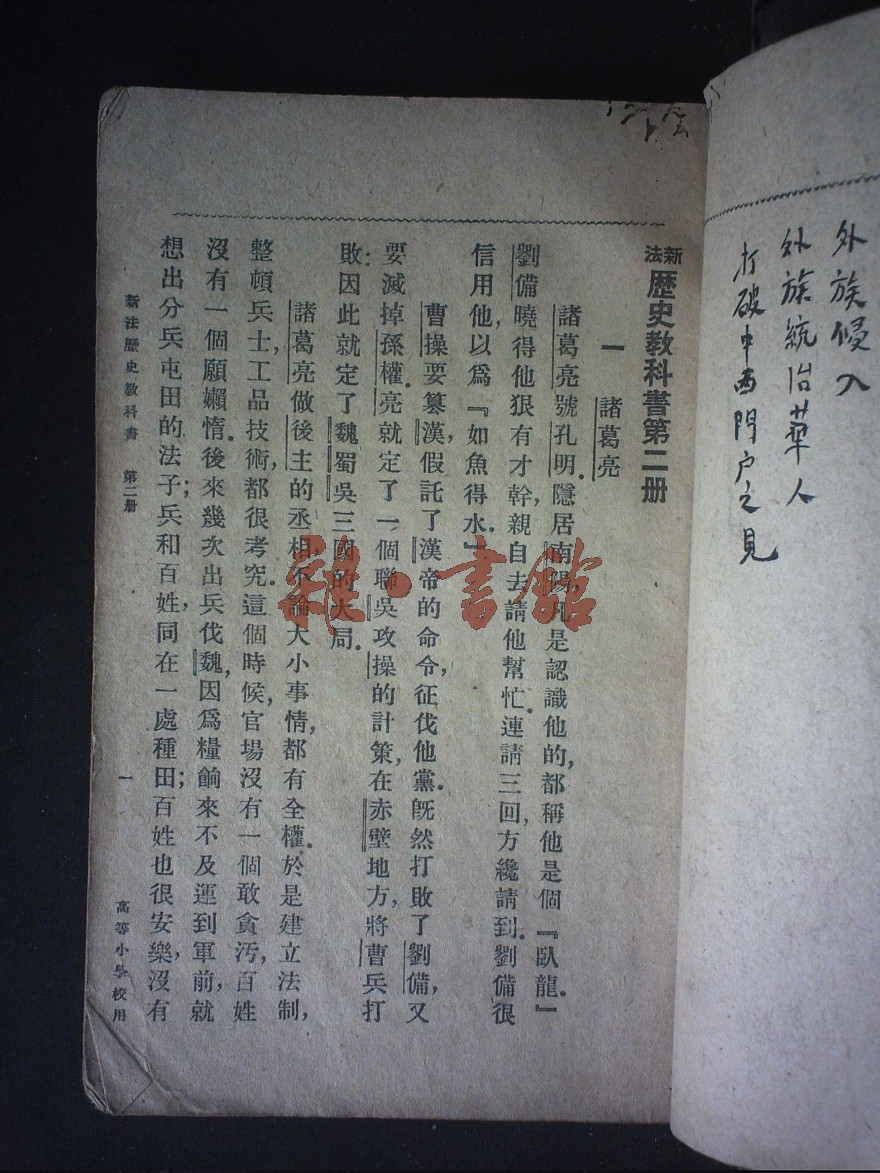 外族侵入
外族統治華人
打破中西門户之見
新法歷史教科書第二册
一　諸葛亮
諸葛亮號孔明.隱居南陽,凡是認識他的,都稱他是個『臥龍.』
劉備曉得他狠有才幹,親自去請他幫忙.連請三回,方纔請到.劉備很
信用他,以爲『如魚得水.』
曹操要篡漢,假託了漢帝的命令,征伐他黨.旣然打敗了劉備,又
要滅掉孫權.亮就定了一個聯吳攻操的計策,在赤壁地方,將曹兵打
敗:因此就定了魏蜀吳三國的大局.
諸葛亮做後主的丞相,不論大小事情,都有全權.於是建立法制,
整頓兵士,工品技術,都很考究.這個時候,官場沒有一個敢貪汚,百姓
沒有一個願嬾惰.後來幾次出兵伐魏,因爲糧餉來不及運到軍前,就
想出分兵屯田的法子;兵和百姓,同在一處種田;百姓也很安樂,沒有
新法歷史教科書　第二册　一　高等小學校用
雜·書館